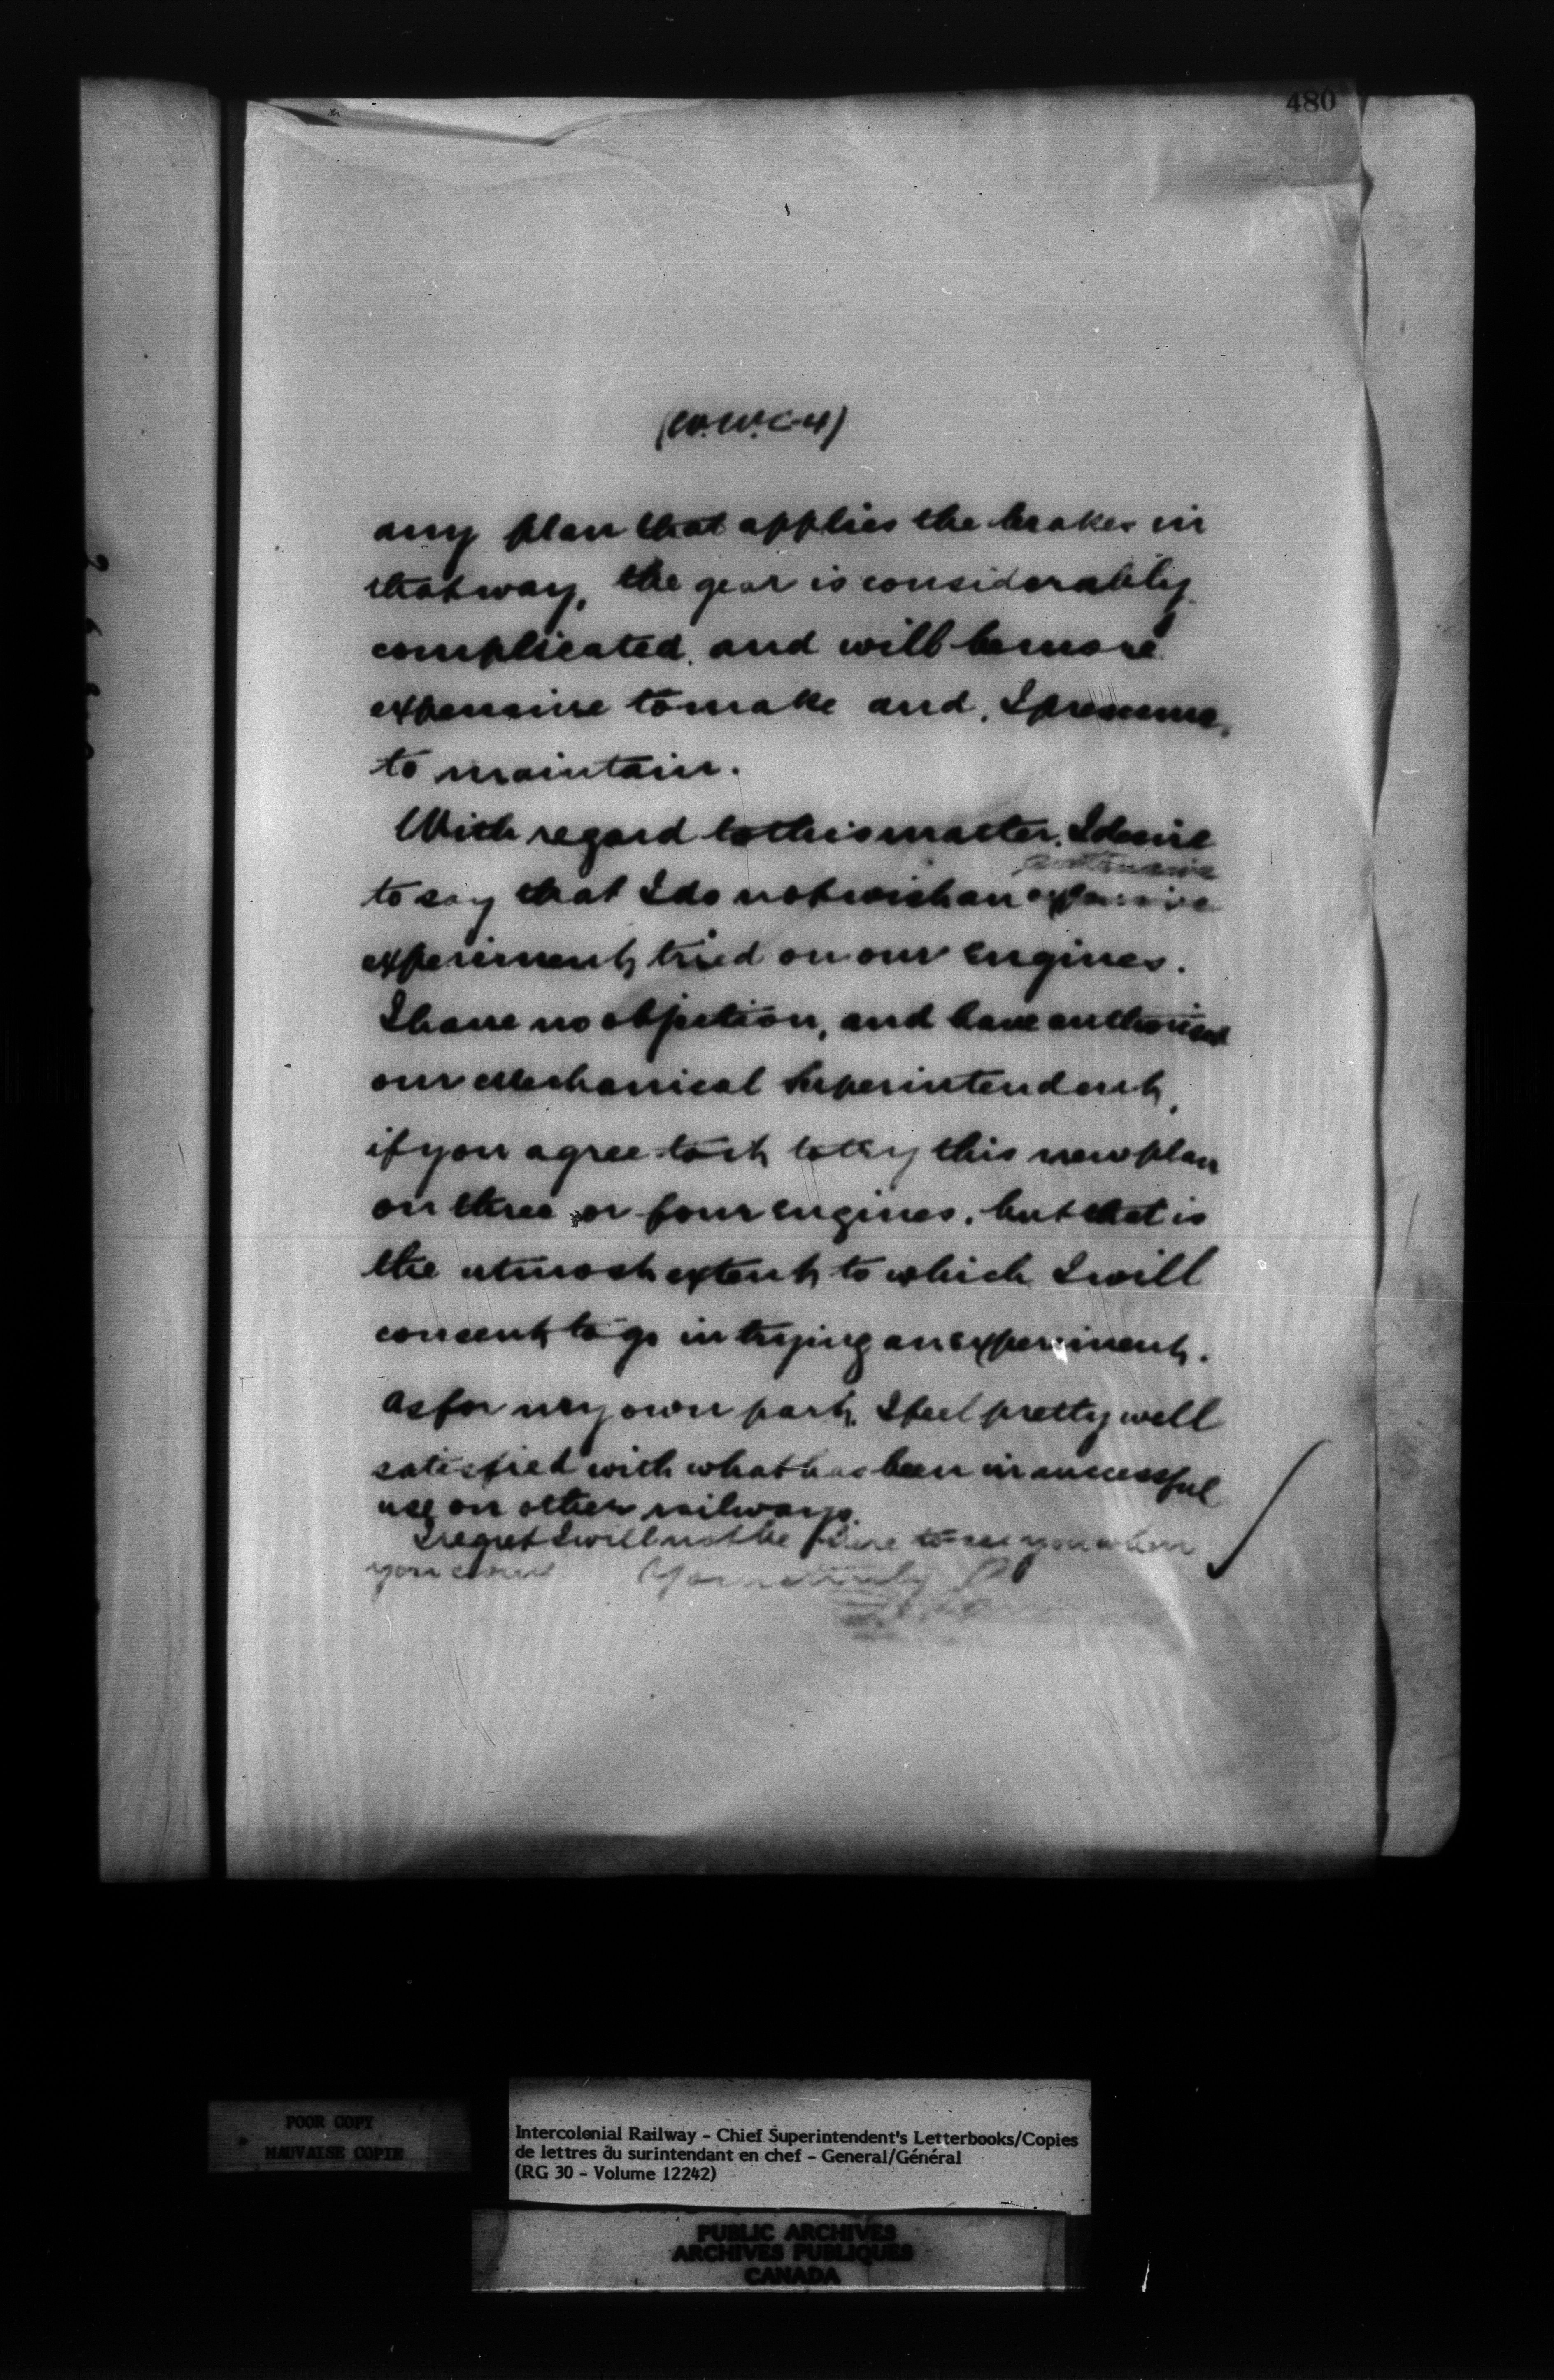 480
(W.W.C-4)
any plan that applies the brakes in
that way, the gear is considerably
complicated, and will be more
expensive to make and, I presume,
to maintain.
With regard to this matter, I desire
extensive
to say that I do not wish an expensive
experiment tried on our engines.
I have no objection, and have authorised
our Mechanical Superintendent,
if you agree to it, to try this new plan
on three or four engines, but that is
the utmost extent to which I will
consent to go in trying an experiment.
As for my own part, I feel pretty well
satisfied with what has been in successful
use on other railways.
I regret I will not be here to see you when
you come. Yours truly
POOR COPY
MAUVAISE COPIE
Intercolonial Railway - Chief Superintendent's Letterbooks/Copies
de lettres du surintendant en chef - General/Général
(RG 30 - Volume 12242)
PUBLIC ARCHIVES
ARCHIVES PUBLIQUES
CANADA